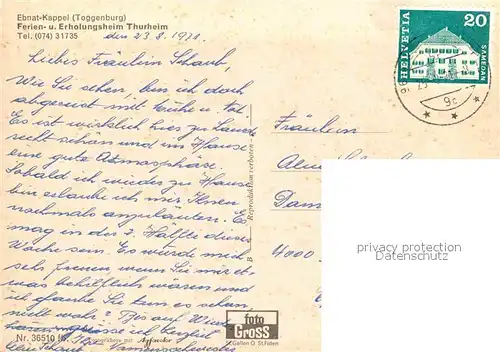 Ebnat-Kappel (Toggenburg)
Ferien- u. Erholungsheim Thurheim
Tel. (074) 31735
den 23.8.1971.
Liebes Fräulein Schaub,
Wie Sie sehen, bin ich doch
abgereist mit Mühe u. Not.
Es ist wirklich hier zu Lande
recht schön und im Hause
eine gute Atmosphäre.
Sobald ich wieder zu Hause
bin erlaube ich mir Ihnen
nochmals anzuläuten. Es
mag in der 2. Hälfte dieser
Woche sein. Es würde mich
sehr freuen wenn Sie mir et-
was behilflich wären und
ich glaube Sie tun es schon
nicht wahr? Also auf Wieder
ich herzlich
HELVETIA
20
SAMEDAN
9c
Fräulein
4000
Reproduktion verboten
B
Nr. 36510
foto
GROSS
St. Gallen O St. Fiden
privacy protection
Datenschutz